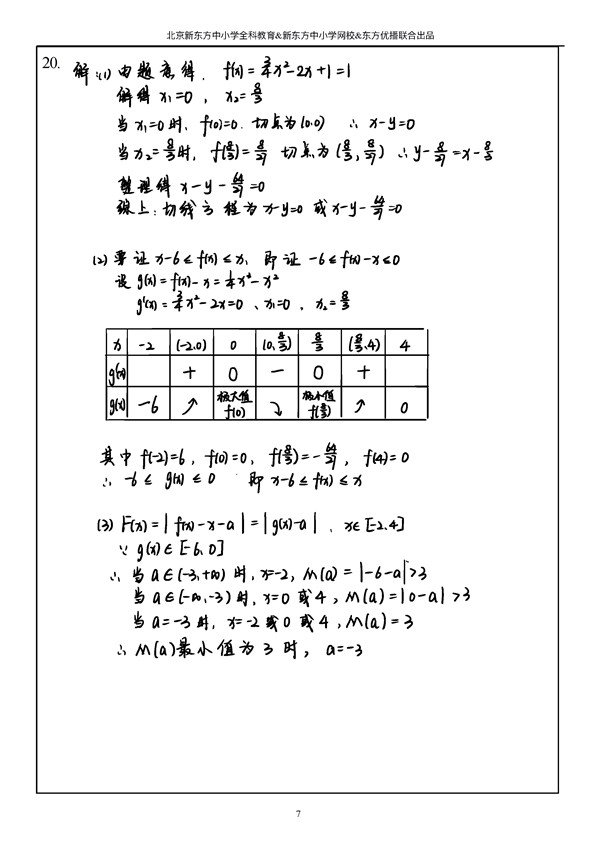 北京新东方中小学全科教育&新东方中小学网校&东方优播联合出品
20. 解:(1) 由题意得. f'(x)=3/4x²-2x+1=1
解得 x₁=0, x₂=8/3
当 x₁=0时, f(0)=0. 切点为(0,0) ∴ x-y=0
当x₂=8/3时, f(8/3)=8/27 切点为(8/3,8/27) ∴y-8/27=x-8/3
整理得 x-y-64/27=0
综上:切线方程为x-y=0 或x-y-64/27=0
(2) 要证 x-6≤f(x)≤x, 即证 -6≤f(x)-x≤0
设 g(x)=f(x)-x=1/4x³-x²
g'(x)=3/4x²-2x=0、x₁=0, x₂=8/3
x -2 (-2,0) 0 (0,8/3) 8/3 (8/3,4) 4
g'(x) + 0 - 0 +
g(x) -6 ↗ 极大值f(0) ↘ 极小值f(8/3) ↗ 0
其中 f(-2)=6, f(0)=0, f(8/3)=-64/27, f(4)=0
∴ -6≤ g(x) ≤0 即 x-6≤f(x)≤x
(3) F(x)=|f(x)-x-a|=|g(x)-a|、x∈[-2,4]
∵ g(x)∈[-6,0]
∴ 当a∈(-3,+∞) 时, x=-2, M(a)=|-6-a|>3
当a∈(-∞,-3)时, x=0 或4, M(a)=|0-a|>3
当a=-3时, x=-2或0或4, M(a)=3
∴ M(a)最小值为3时, a=-3
7